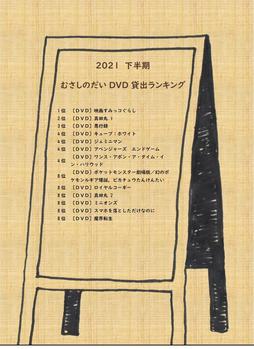 2021 下半期
むさしのだい DVD 貸出ランキング
1位 【DVD】映画すみっコぐらし
2位 【DVD】真田丸 1
3位 【DVD】愚行録
4位 【DVD】キューブ：ホワイト
4位 【DVD】ジェミニマン
4位 【DVD】アベンジャーズ エンドゲーム
4位 【DVD】ワンス・アポン・ア・タイム・イ
ン・ハリウッド
8位 【DVD】ポケットモンスター劇場版/幻のポ
ケモンルギア爆誕，ピカチュウたんけんたい
8位 【DVD】ロイヤルコーギー
8位 【DVD】真田丸 2
8位 【DVD】ミニオンズ
8位 【DVD】スマホを落としただけなのに
8位 【DVD】魔界転生